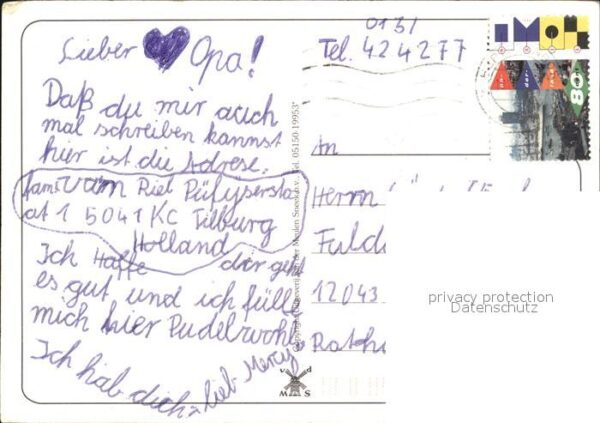 Lieber Opa!
Daß du mir auch
mal schreiben kannst
hier ist die Adrese.
fam van Riel
at 1 5041 KC Tilburg
Holland
Ich Haffe dir geht
es gut und ich fülle
mich hier Pudelwohl.
Ich hab dich lieb Mercy
0131
Tel. 424277
An
Herrn
Fuld
12043
Rath
Tel. 05150-19953*
80
v d
M S
privacy protection
Datenschutz